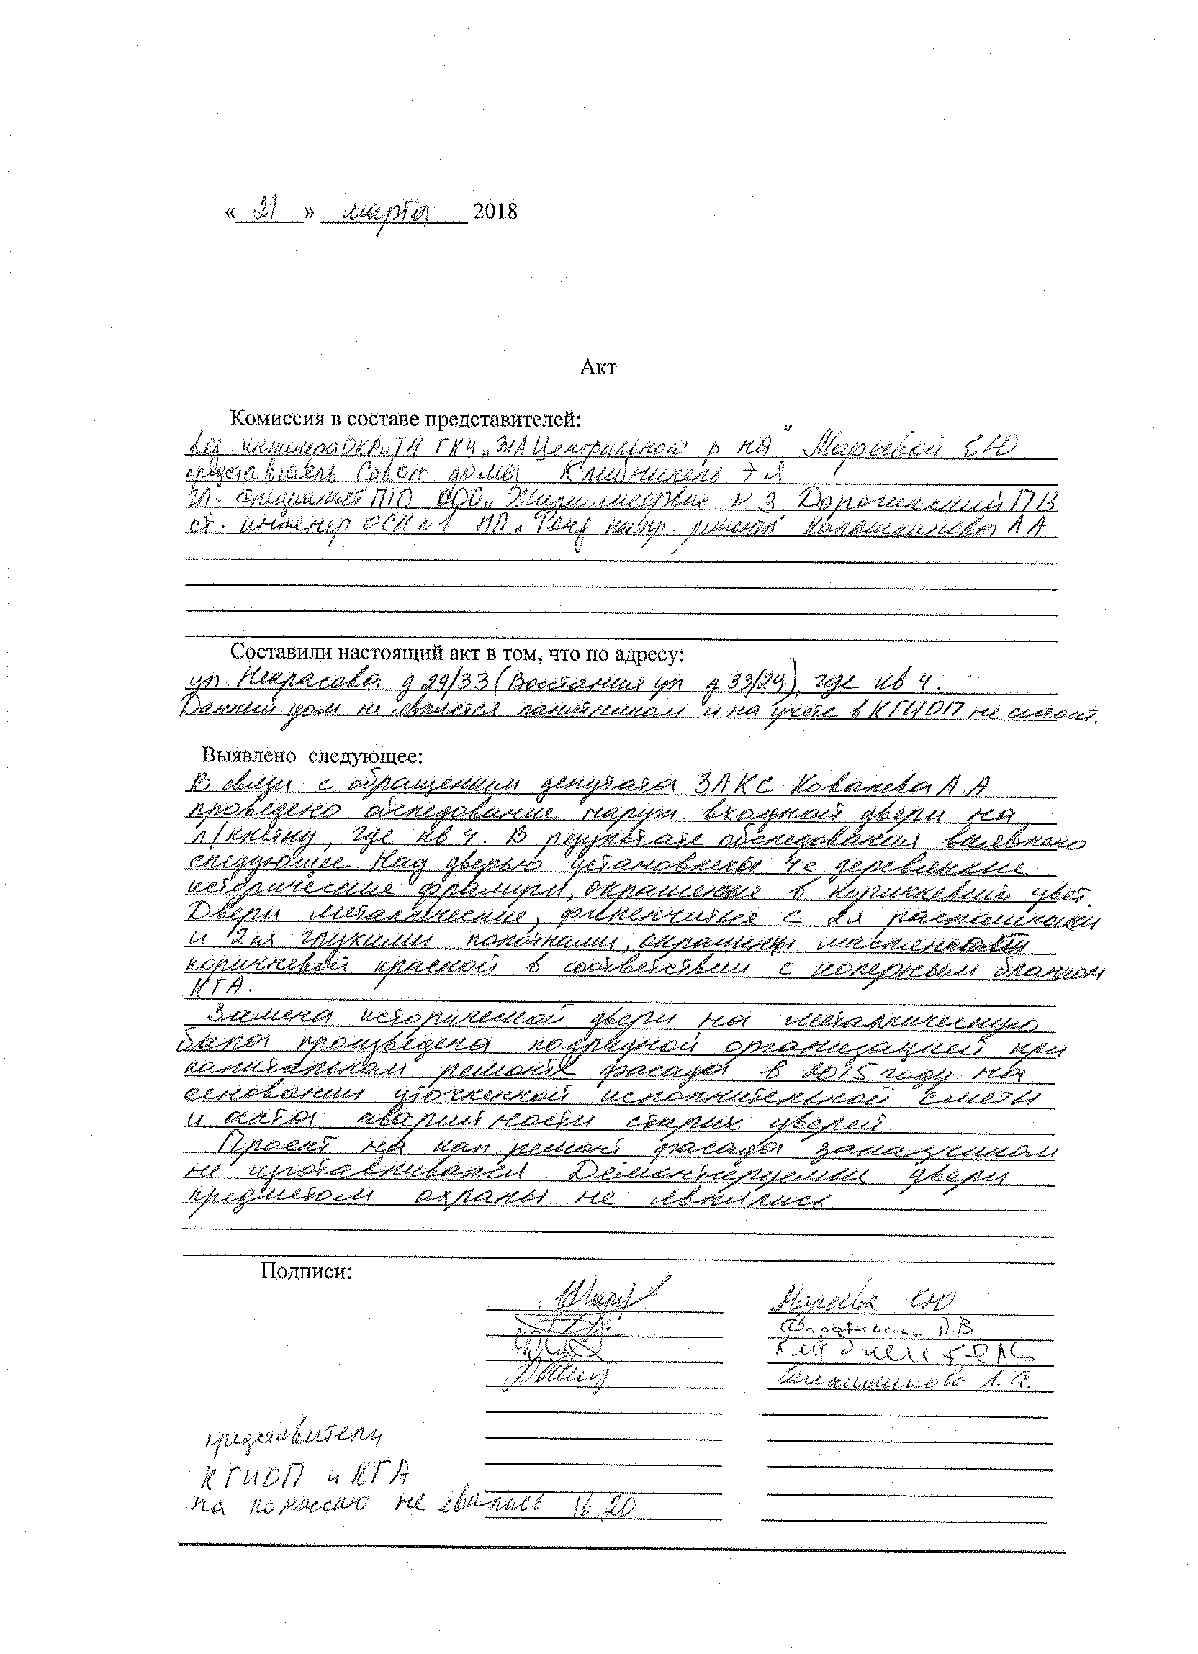 « 21 » марта 2018
Акт
Комиссия в составе представителей:
вед. инженера ОКРиТН ГКУ „ЖА Центрального р-на" Мареевой ЕЮ
представитель Совета дома
гл. специалист ПТО ООО „Жилкомсервис N 3 Дорогинский ПВ
ст. инженер ОСК N1 НО „Фонд кап. ремонта
Составили настоящий акт в том, что по адресу:
ул. Некрасова д 29/33 (Восстания ул д 33/29), где кв 4.
Данный дом не является памятником и на учете в КГИОП не состоит.
Выявлено следующее:
В связи с обращением депутата ЗАКС Ковалева А А
проведено обследование наруж входной двери на
л/клетку, где кв 4. В результате обследования выявлено
следующее Над дверью установлены 4е деревянные
исторические фрамуги, окрашенные в коричневый цвет.
Двери металлические, филенчатые с 2я распашными
и 2мя глухими полотнами, окрашены масляной
коричневой краской в соответствии с колерным бланком
КГА.
Замена исторической двери на металлическую
была произведена подрядной организацией при
капитальном ремонте фасада в 2015 году на
основании уточненной исполнительной сметы
и акта аварийности старых дверей
Проект на кап ремонт фасада заказчиком
не изготавливался Демонтируемые двери
предметом охраны не являлись
Подписи:
Мареева ЕЮ
П.В.
представители
КГИОП и КГА
на комиссию не явились 16 20